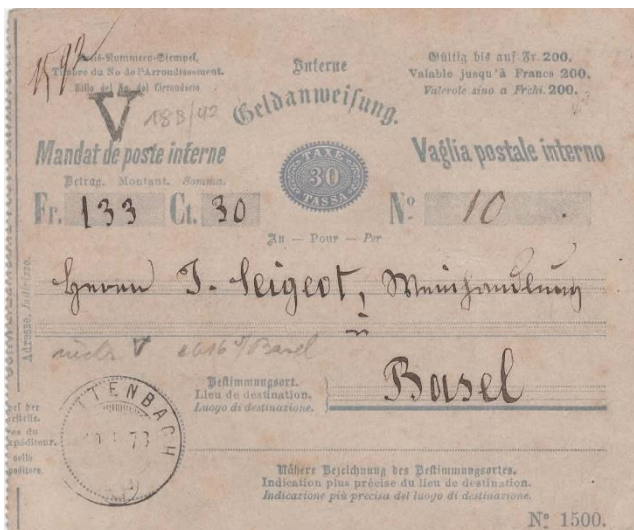 1542
Kreis-Nummern-Stempel.
Timbre du No de l'Arrondissement.
Bollo del No del Circondario
V
183/42
Interne
Geldanweisung.
Gültig bis auf Fr. 200.
Valable jusqu'à Francs 200.
Valevole sino a Frchi. 200.
Mandat de poste interne
TAXE
30
TASSA
Vaglia postale interno
Betrag. Montant. Somma.
Fr. 133 Ct. 30
No 10
An — Pour — Per
Herrn J. Seigeot, Weinhandlung
in
Adresse. Indirizzo.
V Basel
Bestimmungsort.
Lieu de destination.
Luogo di destinazione.
Basel
TTENBACH
73
Nähere Bezeichnung des Bestimmungsortes.
Indication plus précise du lieu de destination.
Indicazione più precisa del luogo di destinazione.
No 1500.